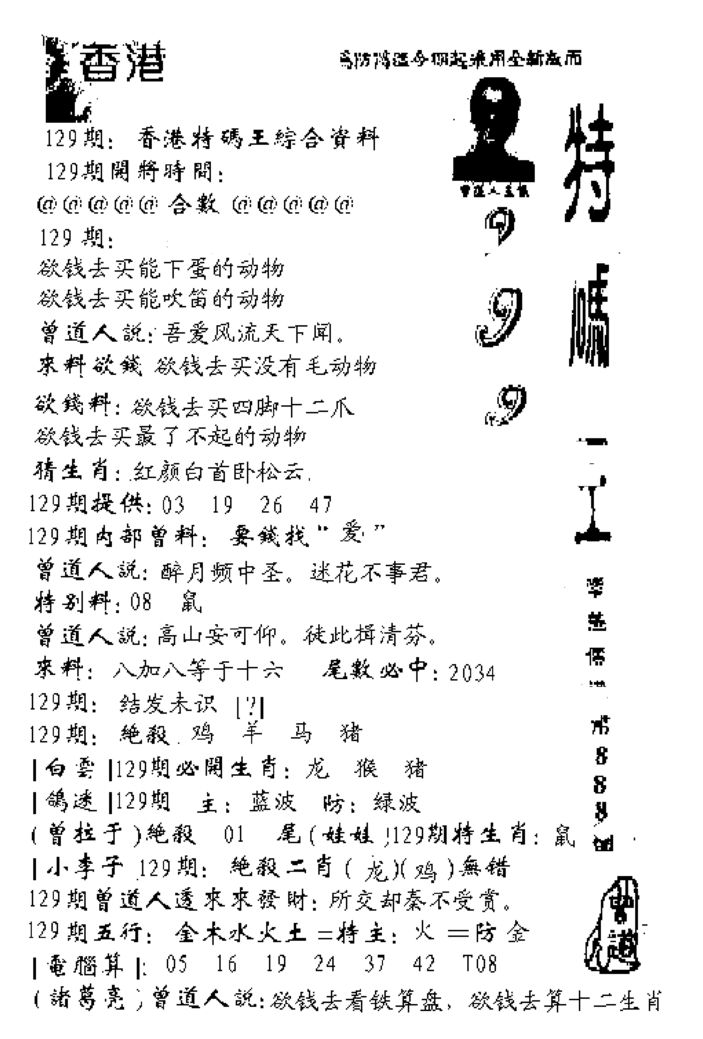 香港
為防搗亂今期起採用全新版面
129期：香港特碼王綜合資料
129期開將時間：
@@@@@ 合數 @@@@@
129 期：
欲钱去买能下蛋的动物
欲钱去买能吹笛的动物
曾道人説：吾爱风流天下闻。
來料欲錢 欲钱去买没有毛动物
欲錢料：欲钱去买四脚十二爪
欲钱去买最了不起的动物
猜生肖：红颜白首卧松云.
129期提供：03 19 26 47
129期内部曾料：要錢找“爱”
曾道人説：醉月频中圣。迷花不事君。
特别料：08 鼠
曾道人説：高山安可仰。徒此楫清芬。
來料：八加八等于十六 尾數必中：2034
129期：结发未识 |?|
129期：絶殺 鸡 羊 马 猪
|白雲|129期必開生肖：龙 猴 猪
|鸽迷|129期 主：蓝波 防：绿波
(曾拉于)絶殺 01 尾(娃娃)129期特生肖：鼠
|小李子 129期：絶殺二肖(龙)(鸡)無错
129期曾道人透來來發財：所交却秦不受赏。
129期五行：金木水火土=特主：火 =防金
|電腦算|：05 16 19 24 37 42 T08
(諸葛亮)曾道人説：欲钱去看铁算盘，欲钱去算十二生肖
特碼王
9
9
9
888
曾道